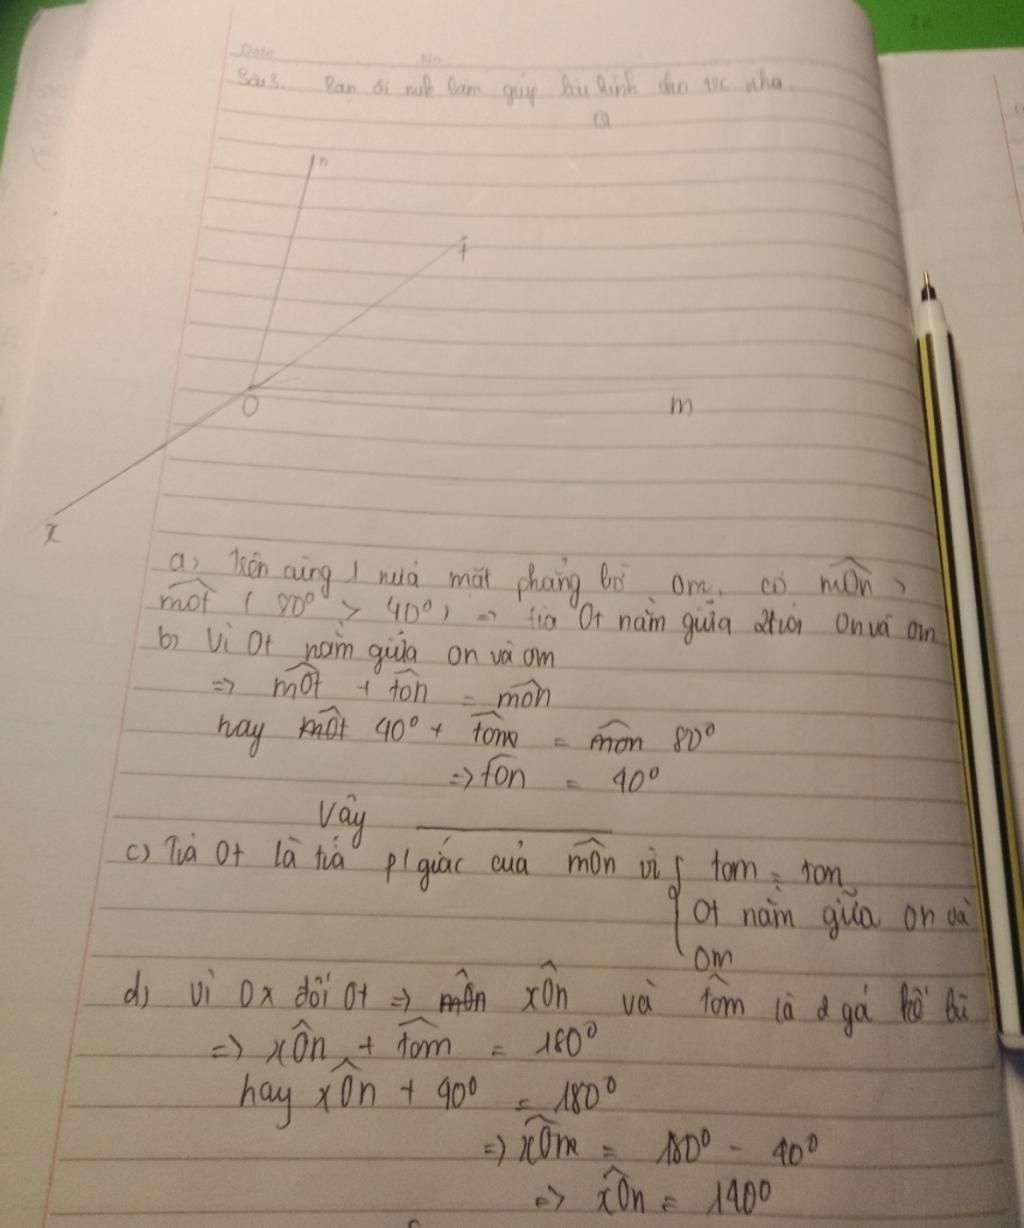 Date No
Bài 3. Bạn ơi mik làm giúp bài hình cho nha
n
t
O
m
x
a, Trên cùng 1 nửa mặt phẳng bờ Om, có mÔn >
mOt ( 80° > 40° ) => tia Ot nằm giữa 2 tia On và Om
b, Vì Ot nằm giữa On và Om
=> mOt + tOn = mOn
hay 40° + tOn = 80°
=> tOn = 40°
Vậy
c) Tia Ot là tia p/giác của mÔn vì { tOm = tOn
Ot nằm giữa On và
Om
d, Vì Ox đối Ot => xÔn và tÔm là 2 gó kề bù
=> xÔn + tOm = 180°
hay xÔn + 40° = 180°
=> xÔn = 180° - 40°
=> xÔn = 140°